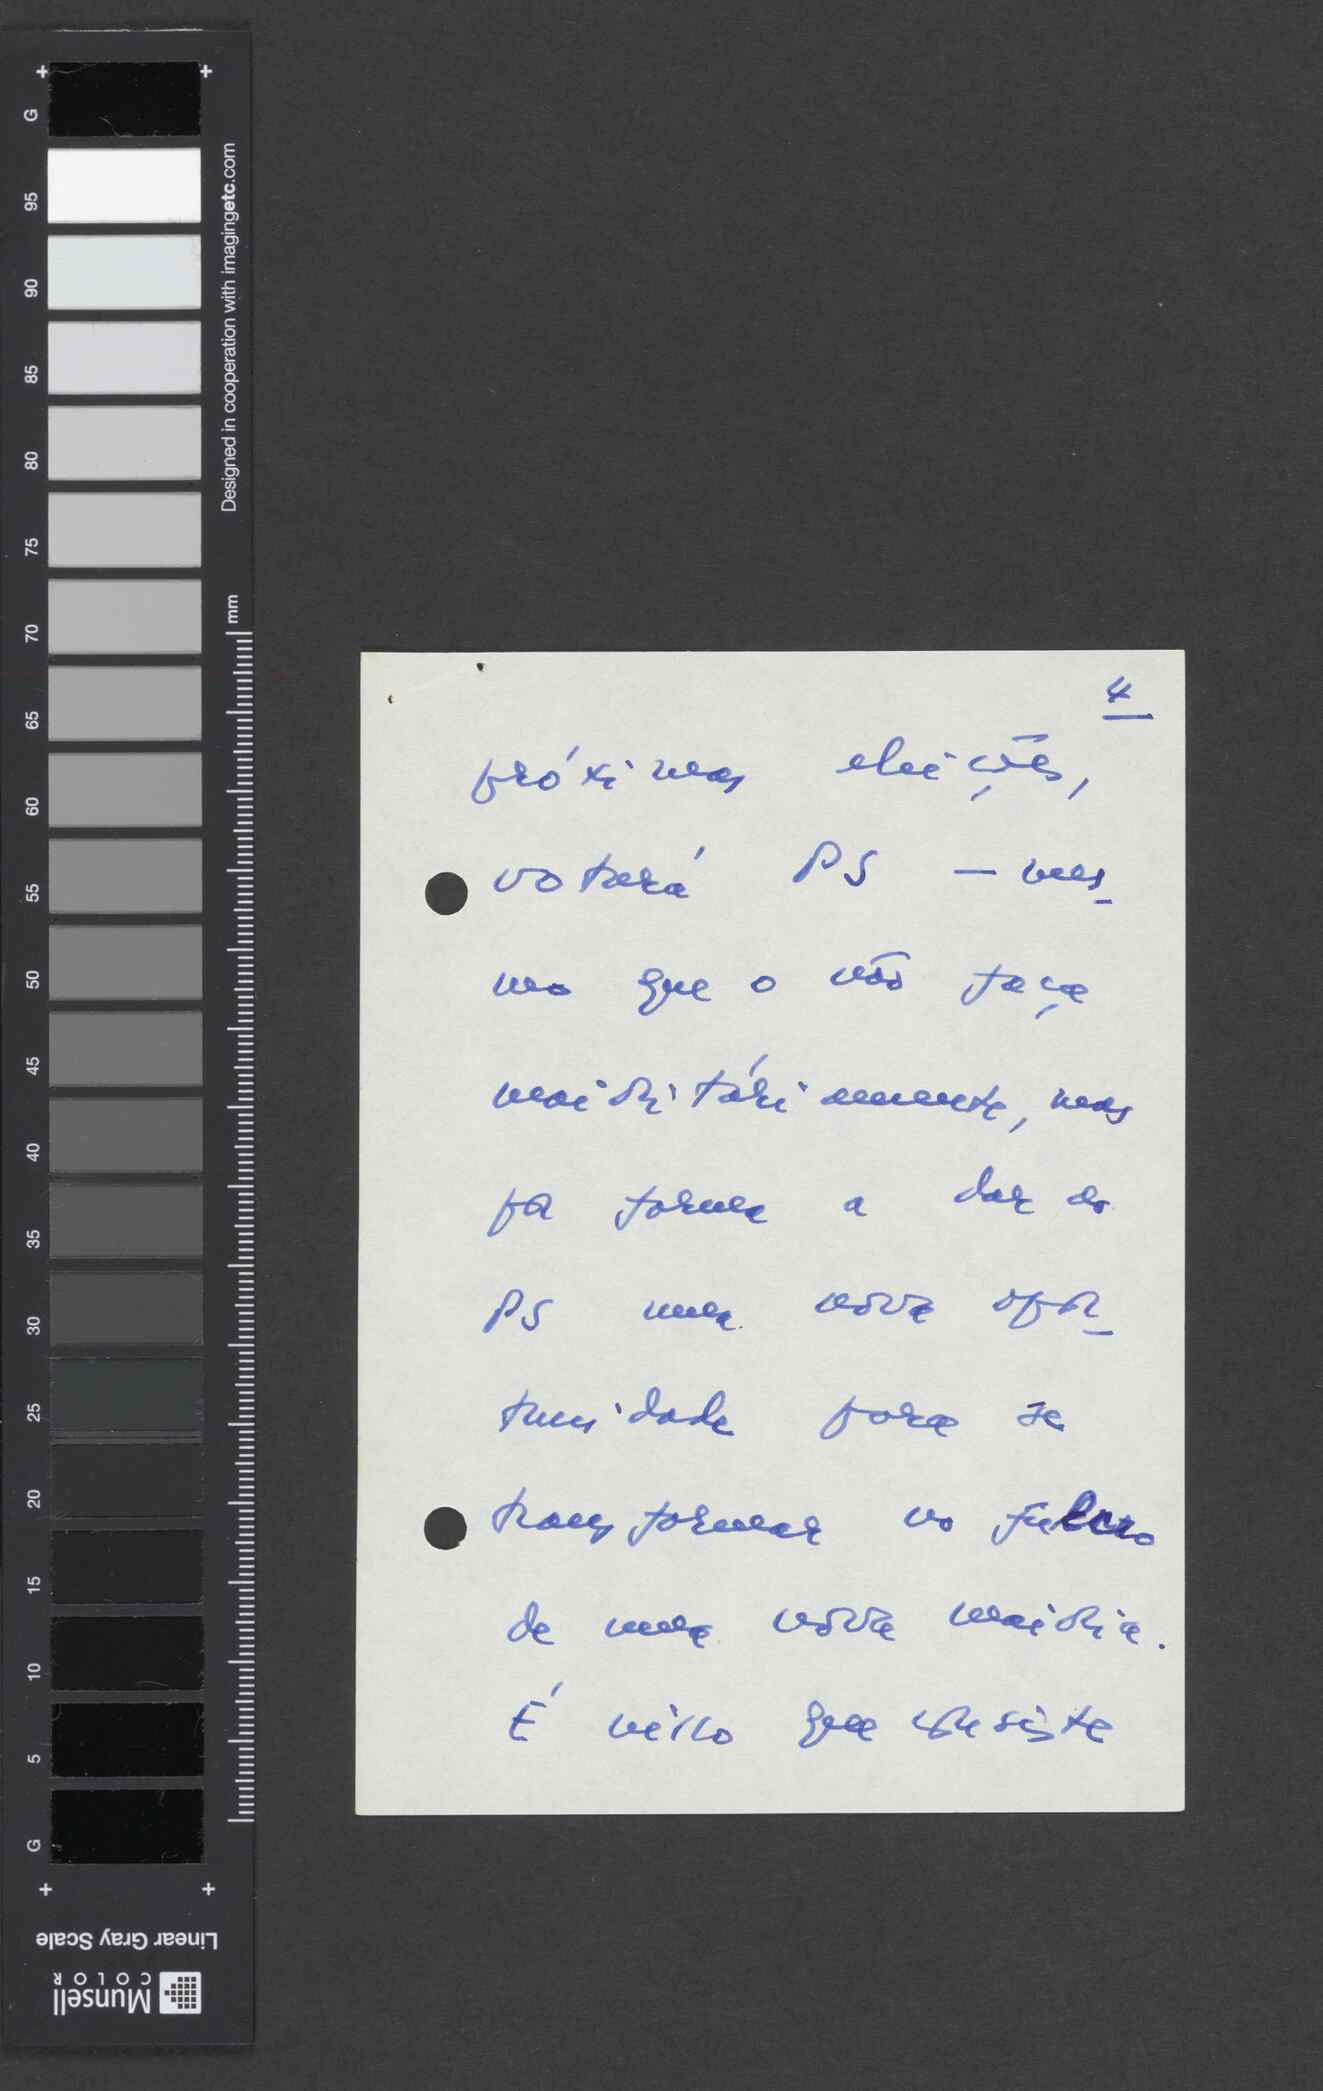 4
próximas eleições,
votará PS — mes-
mo que o não faça
maioritáriamente, mas
por forma a dar ao
PS uma nova opor-
tunidade para se
transformar no fulcro
de uma nova maioria.
É visto que
G
95
90
85
80
75
70
65
60
55
50
45
40
35
30
25
20
15
10
5
G
Designed in cooperation with imagingetc.com
mm
Linear Gray Scale
Munsell
COLOR